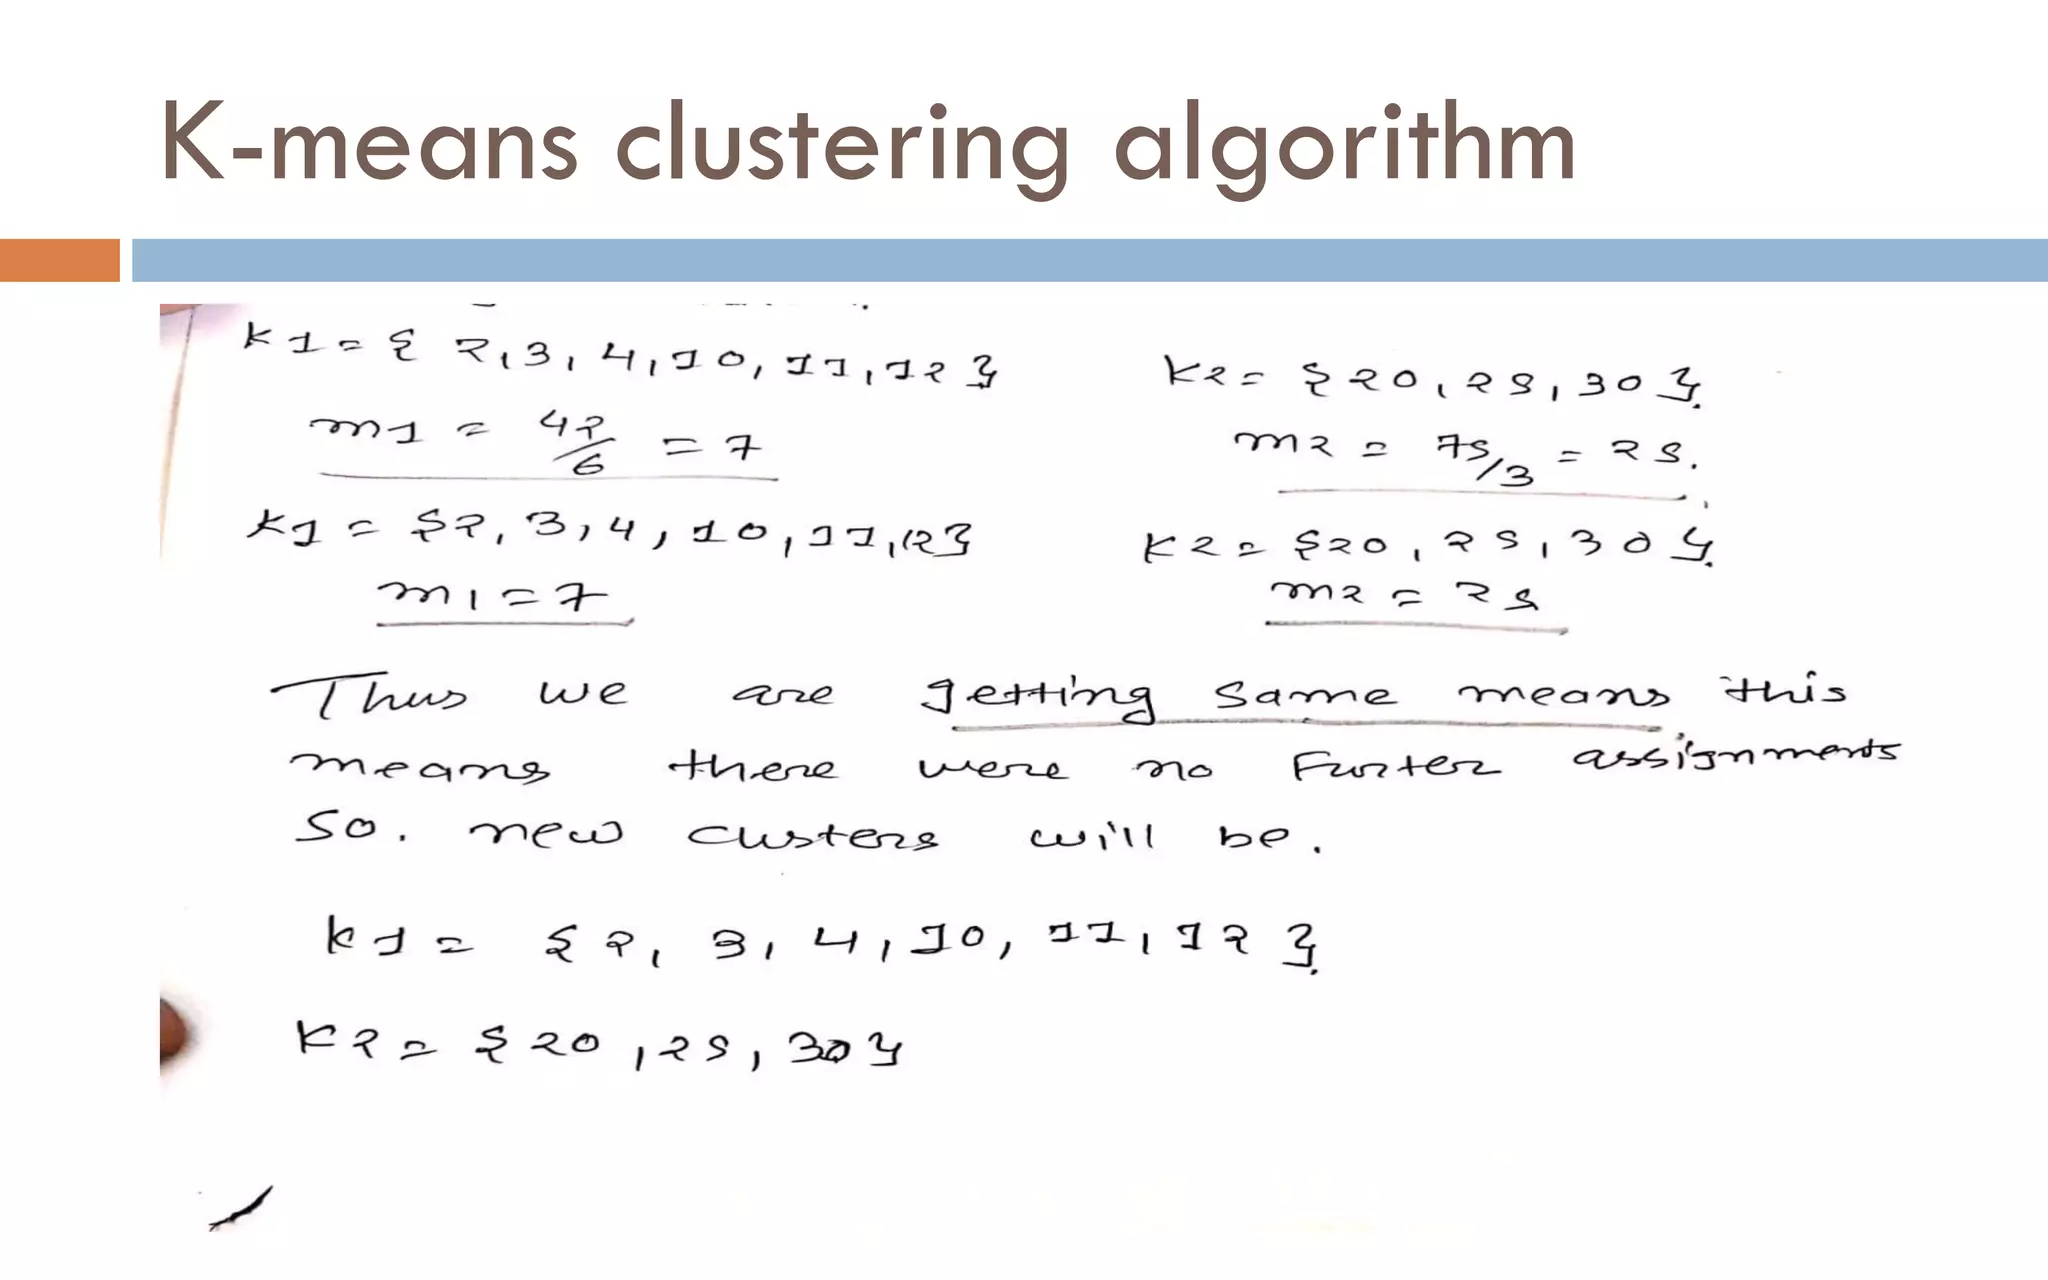 K-means clustering algorithm
K1 = { 2, 3, 4, 10, 11, 12 }
K2 = { 20, 25, 30 }.
m1 = 42/6 = 7
m2 = 75/3 = 25.
K1 = { 2, 3, 4, 10, 11, 12 }
K2 = { 20, 25, 30 }.
m1 = 7
m2 = 25
Thus we are getting same means this
means there were no Furter assignments
So. new custers will be.
K1 = { 2, 3, 4, 10, 11, 12 }.
K2 = { 20, 25, 30 }